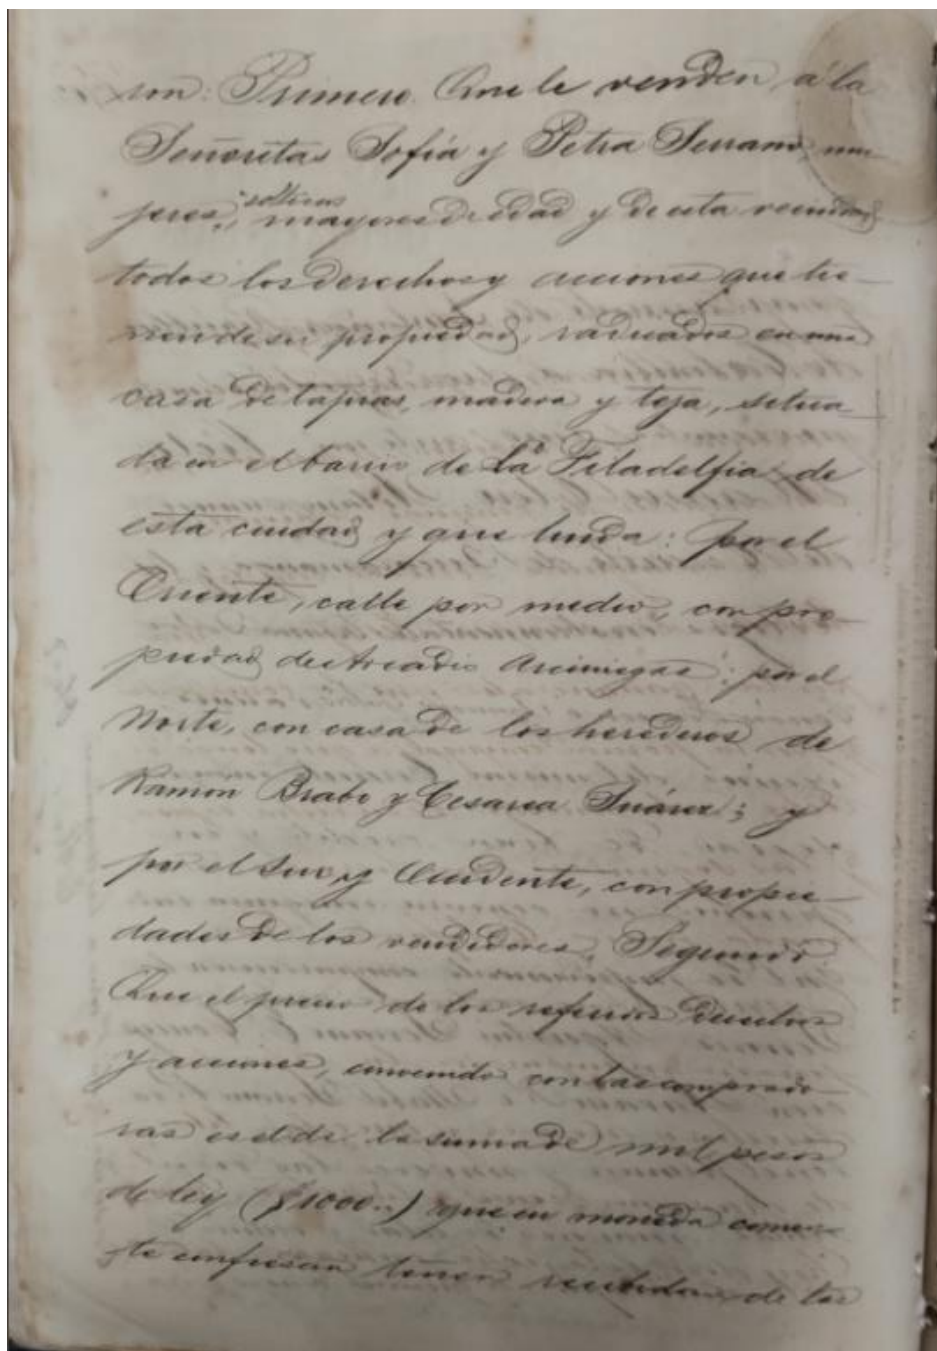 son: Primero. Que le venden á la
Señoritas Sofía y Petra Serrano, mu-
jeres, solteras mayores de edad y de esta vecindad
todos los derechos y acciones que tie-
nen de su propiedad, radicados en una
casa de tapias, madera y teja, situa-
da en el barrio de la Filadelfia de
esta ciudad y que linda: por el
Oriente, calle por medio, con pro-
piedad de Arcadio Arciniegas; por el
Norte, con casa de los herederos de
Ramon Brabo y Cesarea Suárez; y
por el Sur y Occidente, con propie-
dades de los vendedores. Segundo
Que el precio de los referidos derechos
y acciones, convenido con las comprado-
ras es el de la suma de mil pesos
de ley ($1000..) que en moneda corrien-
te confiesan tener recibidos de las